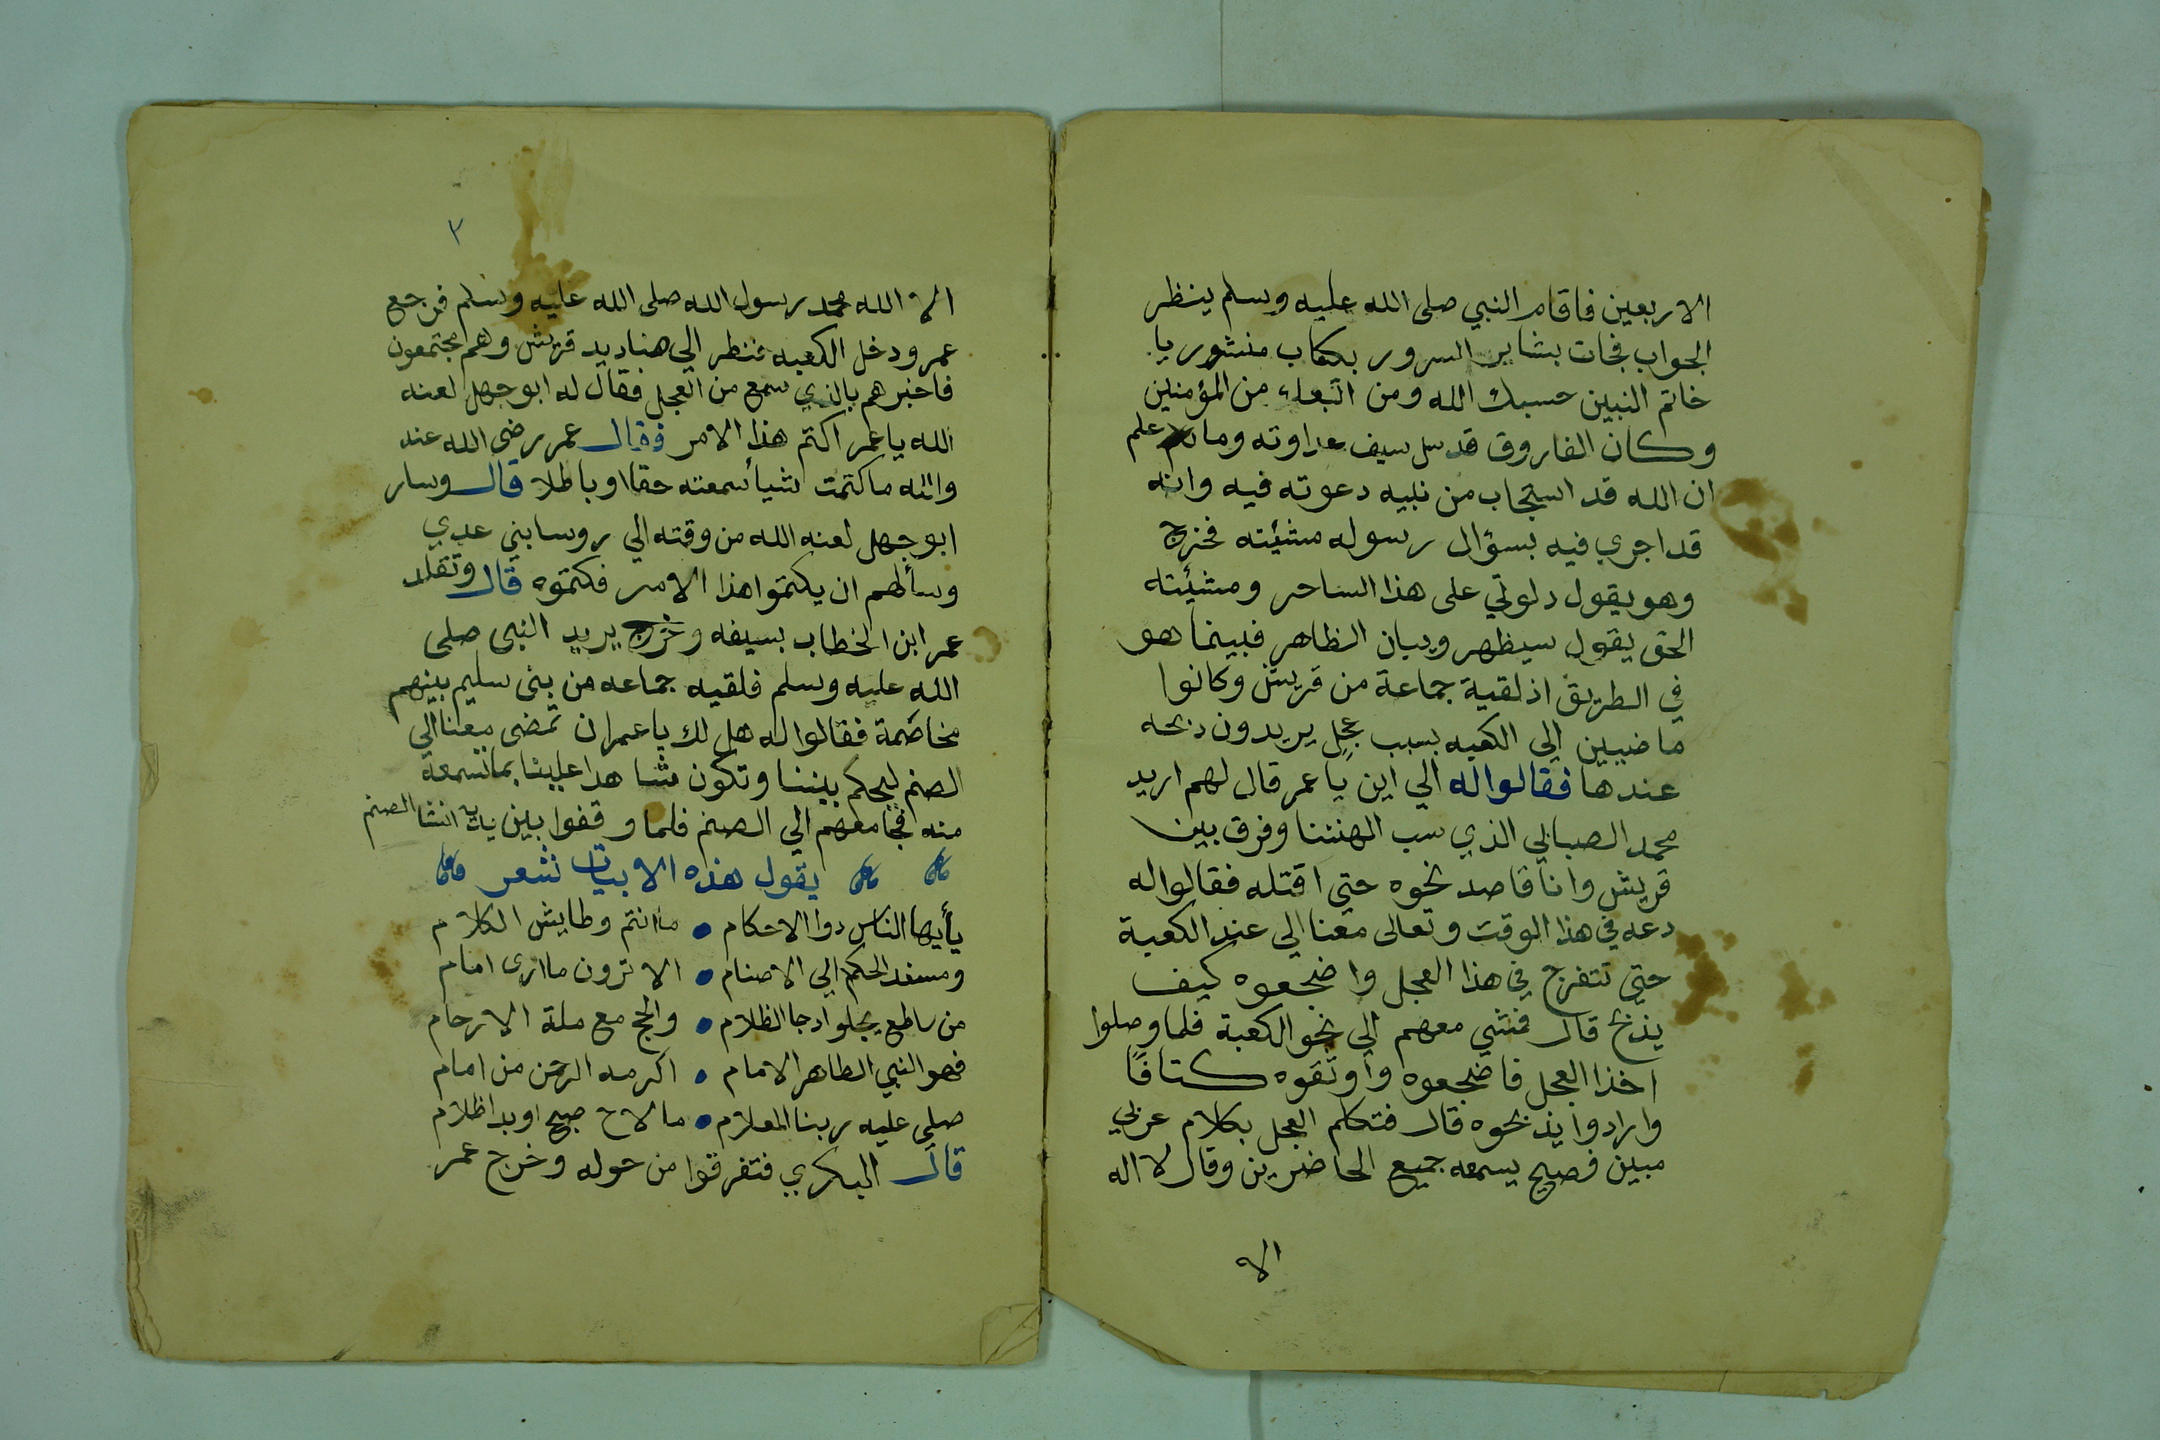 الاربعين فاقام النبي صلى الله عليه وسلم ينظر
الجواب فجات بشاير السرور بكتاب منشور يا
خاتم النبين حسبك الله ومن اتبعك من المؤمنين
وكان الفاروق قد سل سيف عداوته وما علم
ان الله قد استجاب من نبيه دعوته فيه وانه
قد اجري فيه بسؤال رسوله مشيئته فخرج
وهو يقول دلوني على هذا الساحر ومشيئته
الحق يقول سيظهر وبيان الظاهر فبينما هو
في الطريق اذ لقية جماعة من قريش وكانوا
ماضيين الي الكعبه بسبب عجل يريدون ذبحه
عندها فقالوا له الي اين يا عمر قال لهم اريد
محمد الصبائي الذي سب الهتنا وفرق بين
قريش وانا قاصد نحوه حتى اقتله فقالوا له
دعه في هذا الوقت وتعالى معنا الي عند الكعبة
حتي تتفرج في هذا العجل واضجعوه كيف
يذبح قال فمشي معهم الي نحو الكعبة فلما وصلوا
اخذا العجل فاضجعوه واوثقوه كتافًا
وارادوا يذبحوه قال فتكلم العجل بكلام عربي
مبين فصيح يسمعه جميع الحاضرين وقال لا اله
الا
٢
الا الله محمد رسول الله صلى الله عليه وسلم فرجع
عمر ودخل الكعبه فنظر الي صناديد قريش وهم مجتمعون
فاخبرهم بالذي سمع من العجل فقال له ابو جهل لعنه
الله يا عمر اكتم هذا الامر فقال عمر رضى الله عنه
والله ما كتمت شيأ سمعته حقا او باطلا قال وسار
ابو جهل لعنه الله من وقته الي روسا بني عدي
وسألهم ان يكتموا هذا الامر فكتموه قال وتقلد
عمر ابن الخطاب بسيفه وخرج يريد النبى صلى
الله عليه وسلم فلقيه جماعه من بنى سليم بينهم
مخاصمة فقالوا له هل لك يا عمر ان تمضى معنا الي
الصنم ليحكم بيننا وتكون شاهدا علينا بما تسمعه
منه فجا معهم الي الصنم فلما وقفوا بين يديه انشا الصنم
يقول هذه الابيات شعر
يأيها الناس ذوا الاحكام • ما انتم وطايش الكلام
ومسند الحكم الي الاصنام • الا ترون ما ارى امام
من ساطع يجلوا دجا الظلام • والحج مع صلة الارحام
فهو النبي الطاهر الامام • اكرمه الرحمن من امام
صلى عليه ربنا العلام • ما لاح صبح او بدا ظلام
قال البكري فتفرقوا من حوله وخرج عمر